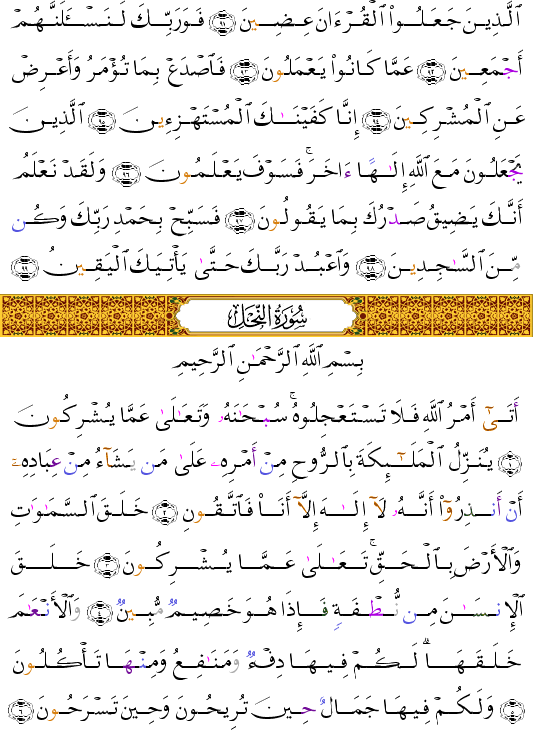 ٱلَّذِينَ جَعَلُوا۟ ٱلْقُرْءَانَ عِضِينَ ۝٩١ فَوَرَبِّكَ لَنَسْـَٔلَنَّهُمْ
أَجْمَعِينَ ۝٩٢ عَمَّا كَانُوا۟ يَعْمَلُونَ ۝٩٣ فَٱصْدَعْ بِمَا تُؤْمَرُ وَأَعْرِضْ
عَنِ ٱلْمُشْرِكِينَ ۝٩٤ إِنَّا كَفَيْنَـٰكَ ٱلْمُسْتَهْزِءِينَ ۝٩٥ ٱلَّذِينَ
يَجْعَلُونَ مَعَ ٱللَّهِ إِلَـٰهًا ءَاخَرَ ۚ فَسَوْفَ يَعْلَمُونَ ۝٩٦ وَلَقَدْ نَعْلَمُ
أَنَّكَ يَضِيقُ صَدْرُكَ بِمَا يَقُولُونَ ۝٩٧ فَسَبِّحْ بِحَمْدِ رَبِّكَ وَكُن
مِّنَ ٱلسَّـٰجِدِينَ ۝٩٨ وَٱعْبُدْ رَبَّكَ حَتَّىٰ يَأْتِيَكَ ٱلْيَقِينُ ۝٩٩
سُورَةُ النَّحْلِ
بِسْمِ ٱللَّهِ ٱلرَّحْمَـٰنِ ٱلرَّحِيمِ
أَتَىٰٓ أَمْرُ ٱللَّهِ فَلَا تَسْتَعْجِلُوهُ ۚ سُبْحَـٰنَهُۥ وَتَعَـٰلَىٰ عَمَّا يُشْرِكُونَ
۝١ يُنَزِّلُ ٱلْمَلَـٰٓئِكَةَ بِٱلرُّوحِ مِنْ أَمْرِهِۦ عَلَىٰ مَن يَشَآءُ مِنْ عِبَادِهِۦٓ
أَنْ أَنذِرُوٓا۟ أَنَّهُۥ لَآ إِلَـٰهَ إِلَّآ أَنَا۠ فَٱتَّقُونِ ۝٢ خَلَقَ ٱلسَّمَـٰوَٰتِ
وَٱلْأَرْضَ بِٱلْحَقِّ ۚ تَعَـٰلَىٰ عَمَّا يُشْرِكُونَ ۝٣ خَلَقَ
ٱلْإِنسَـٰنَ مِن نُّطْفَةٍ فَإِذَا هُوَ خَصِيمٌ مُّبِينٌ ۝٤ وَٱلْأَنْعَـٰمَ
خَلَقَهَا ۗ لَكُمْ فِيهَا دِفْءٌ وَمَنَـٰفِعُ وَمِنْهَا تَأْكُلُونَ
۝٥ وَلَكُمْ فِيهَا جَمَالٌ حِينَ تُرِيحُونَ وَحِينَ تَسْرَحُونَ ۝٦